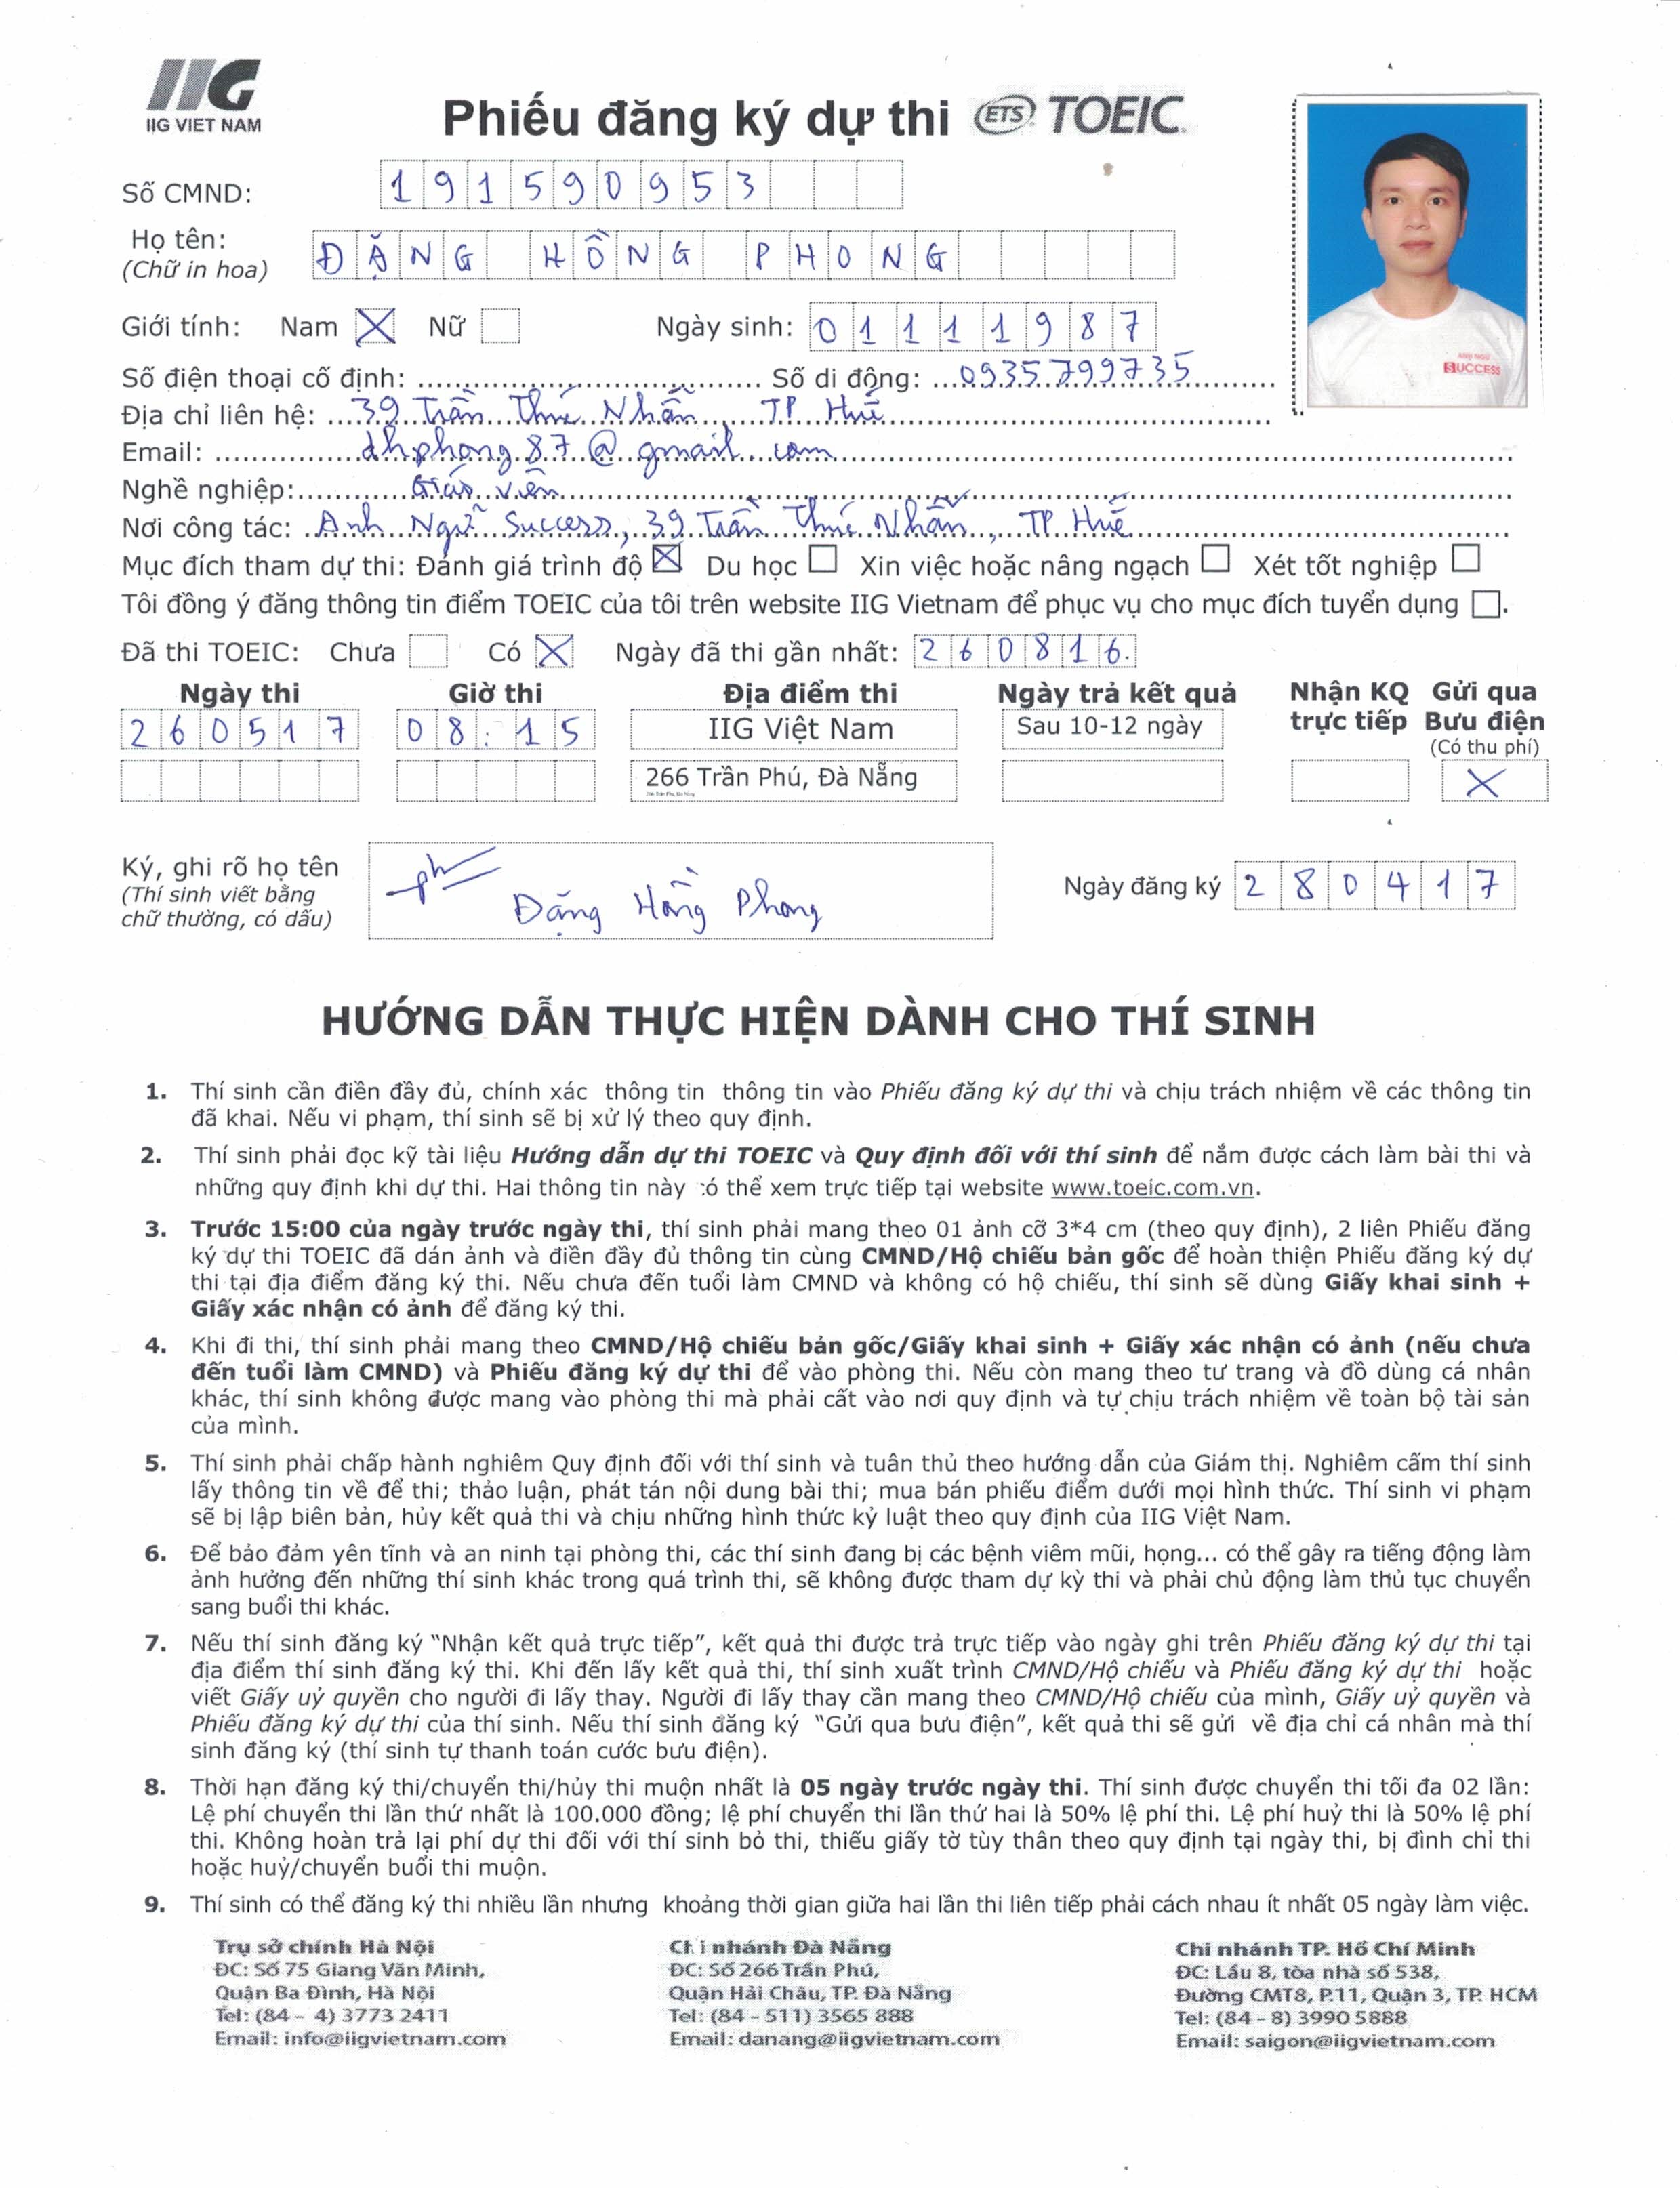 IIG
IIG VIET NAM
Phiếu đăng ký dự thi ETS TOEIC
Số CMND: 191590953
Họ tên: ĐẶNG HỒNG PHONG
(Chữ in hoa)
Giới tính: Nam Nữ Ngày sinh: 01111987
ANH NGỮ
SUCCESS
Số điện thoại cố định: Số di động: 0935799735
Địa chỉ liên hệ: 39 Trần Thúc Nhẫn TP Huế
Email: dhphong87@gmail.com
Nghề nghiệp: Giáo viên
Nơi công tác: Anh Ngữ Success, 39 Trần Thúc Nhẫn, TP Huế
Mục đích tham dự thi: Đánh giá trình độ Du học Xin việc hoặc nâng ngạch Xét tốt nghiệp
Tôi đồng ý đăng thông tin điểm TOEIC của tôi trên website IIG Vietnam để phục vụ cho mục đích tuyển dụng .
Đã thi TOEIC: Chưa Có Ngày đã thi gần nhất: 260816.
Ngày thi Giờ thi Địa điểm thi Ngày trả kết quả Nhận KQ trực tiếp Gửi qua Bưu điện
(Có thu phí)
260517 08:15 IIG Việt Nam Sau 10-12 ngày
266 Trần Phú, Đà Nẵng
266 Trần Phú, Đà Nẵng
Ký, ghi rõ họ tên
(Thí sinh viết bằng
chữ thường, có dấu)
Đặng Hồng Phong
Ngày đăng ký 280417
HƯỚNG DẪN THỰC HIỆN DÀNH CHO THÍ SINH
1. Thí sinh cần điền đầy đủ, chính xác thông tin thông tin vào Phiếu đăng ký dự thi và chịu trách nhiệm về các thông tin
đã khai. Nếu vi phạm, thí sinh sẽ bị xử lý theo quy định.
2. Thí sinh phải đọc kỹ tài liệu Hướng dẫn dự thi TOEIC và Quy định đối với thí sinh để nắm được cách làm bài thi và
những quy định khi dự thi. Hai thông tin này có thể xem trực tiếp tại website www.toeic.com.vn.
3. Trước 15:00 của ngày trước ngày thi, thí sinh phải mang theo 01 ảnh cỡ 3*4 cm (theo quy định), 2 liên Phiếu đăng
ký dự thi TOEIC đã dán ảnh và điền đầy đủ thông tin cùng CMND/Hộ chiếu bản gốc để hoàn thiện Phiếu đăng ký dự
thi tại địa điểm đăng ký thi. Nếu chưa đến tuổi làm CMND và không có hộ chiếu, thí sinh sẽ dùng Giấy khai sinh +
Giấy xác nhận có ảnh để đăng ký thi.
4. Khi đi thi, thí sinh phải mang theo CMND/Hộ chiếu bản gốc/Giấy khai sinh + Giấy xác nhận có ảnh (nếu chưa
đến tuổi làm CMND) và Phiếu đăng ký dự thi để vào phòng thi. Nếu còn mang theo tư trang và đồ dùng cá nhân
khác, thí sinh không được mang vào phòng thi mà phải cất vào nơi quy định và tự chịu trách nhiệm về toàn bộ tài sản
của mình.
5. Thí sinh phải chấp hành nghiêm Quy định đối với thí sinh và tuân thủ theo hướng dẫn của Giám thị. Nghiêm cấm thí sinh
lấy thông tin về để thi; thảo luận, phát tán nội dung bài thi; mua bán phiếu điểm dưới mọi hình thức. Thí sinh vi phạm
sẽ bị lập biên bản, hủy kết quả thi và chịu những hình thức kỷ luật theo quy định của IIG Việt Nam.
6. Để bảo đảm yên tĩnh và an ninh tại phòng thi, các thí sinh đang bị các bệnh viêm mũi, họng... có thể gây ra tiếng động làm
ảnh hưởng đến những thí sinh khác trong quá trình thi, sẽ không được tham dự kỳ thi và phải chủ động làm thủ tục chuyển
sang buổi thi khác.
7. Nếu thí sinh đăng ký “Nhận kết quả trực tiếp”, kết quả thi được trả trực tiếp vào ngày ghi trên Phiếu đăng ký dự thi tại
địa điểm thí sinh đăng ký thi. Khi đến lấy kết quả thi, thí sinh xuất trình CMND/Hộ chiếu và Phiếu đăng ký dự thi hoặc
viết Giấy uỷ quyền cho người đi lấy thay. Người đi lấy thay cần mang theo CMND/Hộ chiếu của mình, Giấy uỷ quyền và
Phiếu đăng ký dự thi của thí sinh. Nếu thí sinh đăng ký “Gửi qua bưu điện”, kết quả thi sẽ gửi về địa chỉ cá nhân mà thí
sinh đăng ký (thí sinh tự thanh toán cước bưu điện).
8. Thời hạn đăng ký thi/chuyển thi/hủy thi muộn nhất là 05 ngày trước ngày thi. Thí sinh được chuyển thi tối đa 02 lần:
Lệ phí chuyển thi lần thứ nhất là 100.000 đồng; lệ phí chuyển thi lần thứ hai là 50% lệ phí thi. Lệ phí huỷ thi là 50% lệ phí
thi. Không hoàn trả lại phí dự thi đối với thí sinh bỏ thi, thiếu giấy tờ tùy thân theo quy định tại ngày thi, bị đình chỉ thi
hoặc huỷ/chuyển buổi thi muộn.
9. Thí sinh có thể đăng ký thi nhiều lần nhưng khoảng thời gian giữa hai lần thi liên tiếp phải cách nhau ít nhất 05 ngày làm việc.
Trụ sở chính Hà Nội
ĐC: Số 75 Giang Văn Minh,
Quận Ba Đình, Hà Nội
Tel: (84 - 4) 3773 2411
Email: info@iigvietnam.com
Chi nhánh Đà Nẵng
ĐC: Số 266 Trần Phú,
Quận Hải Châu, TP. Đà Nẵng
Tel: (84 - 511) 3565 888
Email: danang@iigvietnam.com
Chi nhánh TP. Hồ Chí Minh
ĐC: Lầu 8, tòa nhà số 538,
Đường CMT8, P.11, Quận 3, TP. HCM
Tel: (84 - 8) 3990 5888
Email: saigon@iigvietnam.com